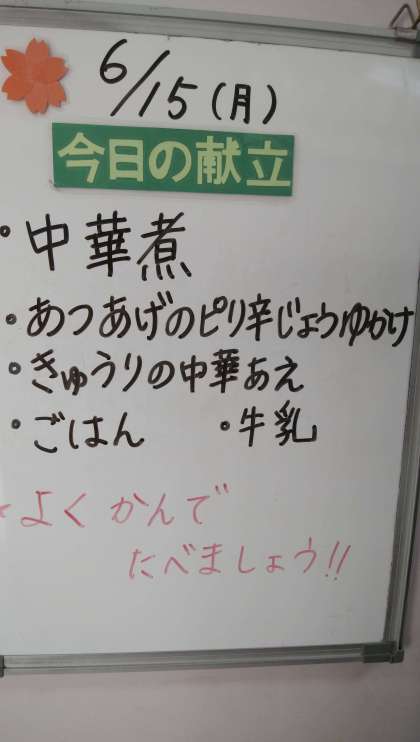 6/15(月)
今日の献立
・中華煮
・あつあげのピリ辛じょうゆかけ
・きゅうりの中華あえ
・ごはん ・牛乳
よくかんで
たべましょう!!